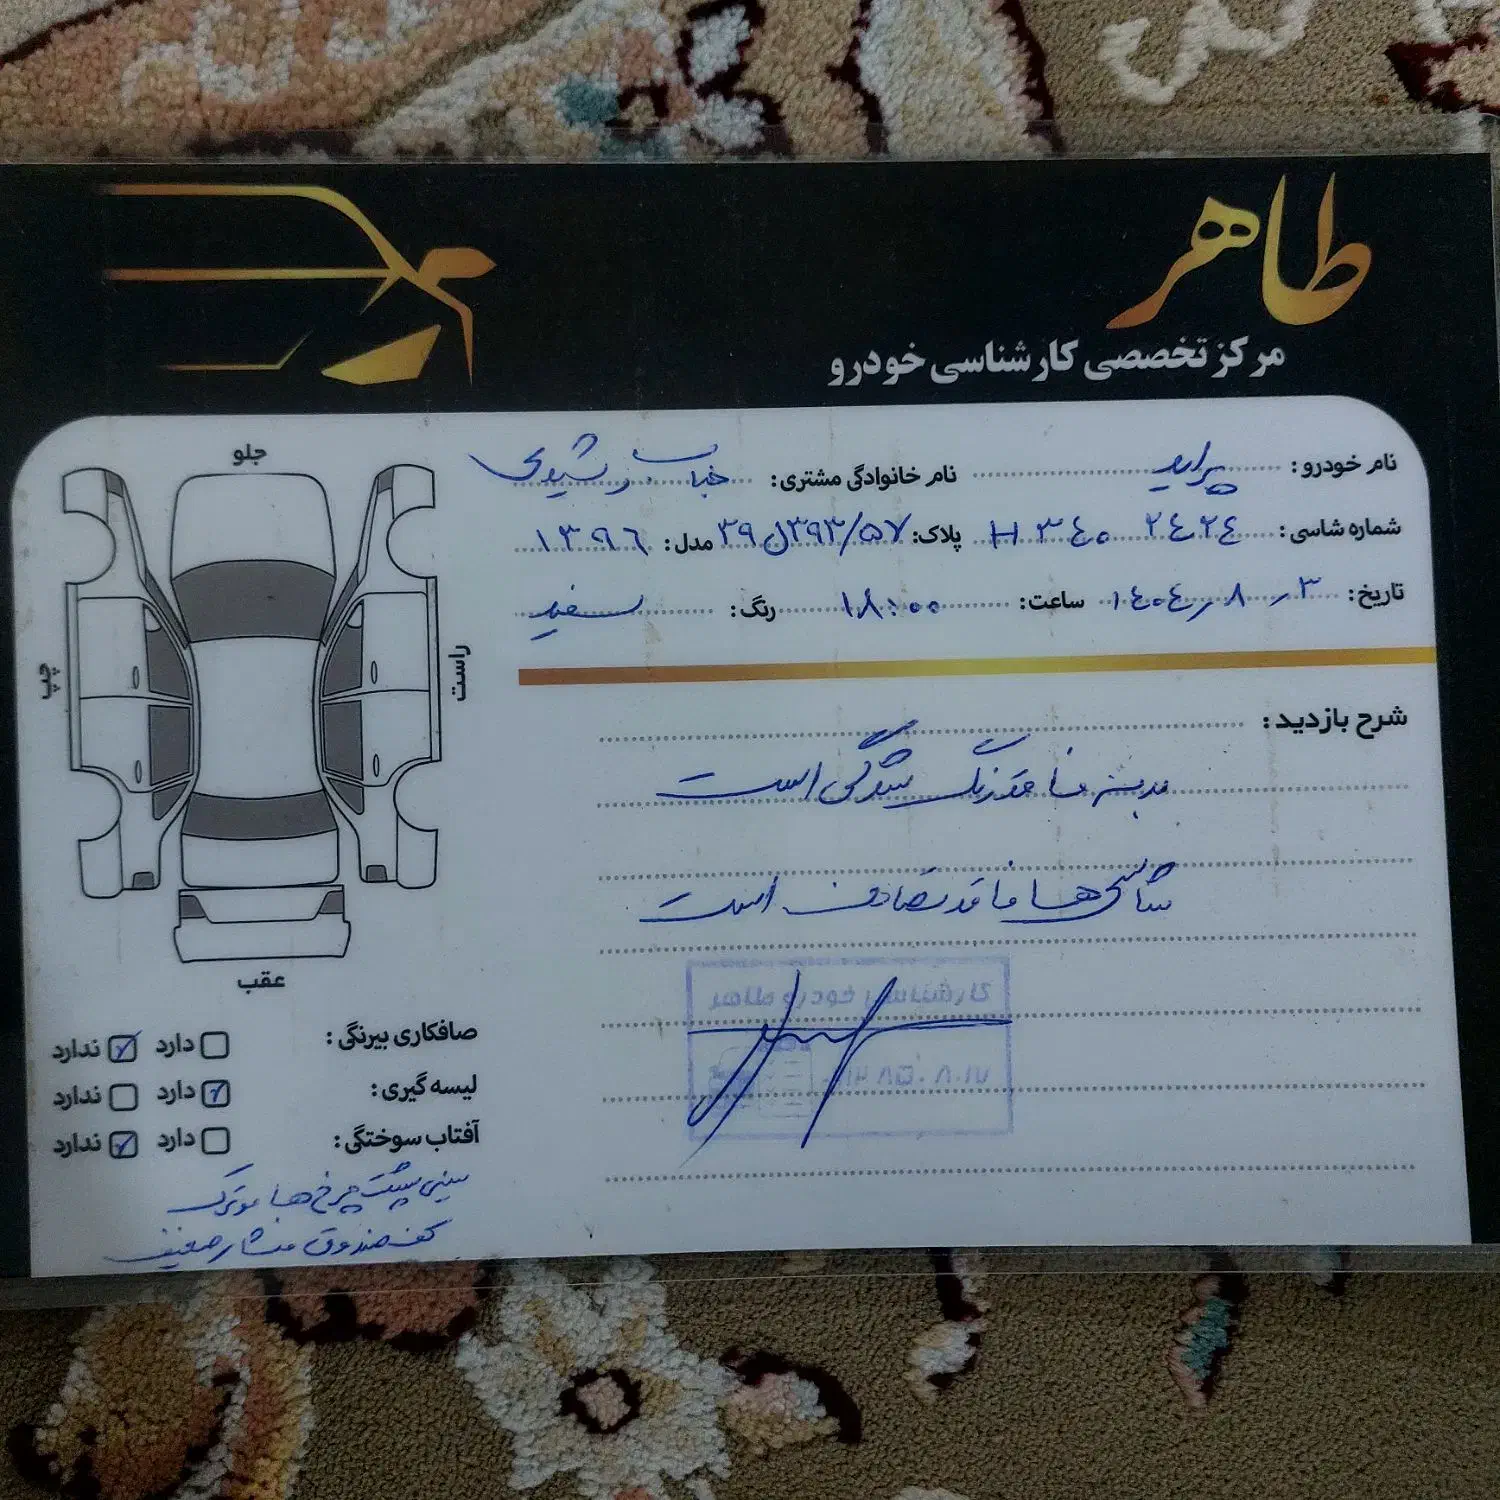 طاهر
مرکز تخصصی کارشناسی خودرو
نام خودرو: پراید نام خانوادگی مشتری: جناب رشیدی
شماره شاسی: H ۳۴۰ ۲۴۲۴ پلاک: ۵۷/۳۹۳ل۳۹ مدل: ۱۳۹۶
تاریخ: ۱۴۰۴/۸/۳ ساعت: ۱۸:۰۰ رنگ: سفید
شرح بازدید:
بدنه فاقد رنگ شدگی است
شاسی ها فاقد تصادف است
کارشناسی خودرو طاهر
جلو
چپ
راست
عقب
صافکاری بیرنگی: دارد ندارد
لیسه گیری: دارد ندارد
آفتاب سوختگی: دارد ندارد
سینی پشت چرخ ها موترک
کف صندوق فشار ضعیف